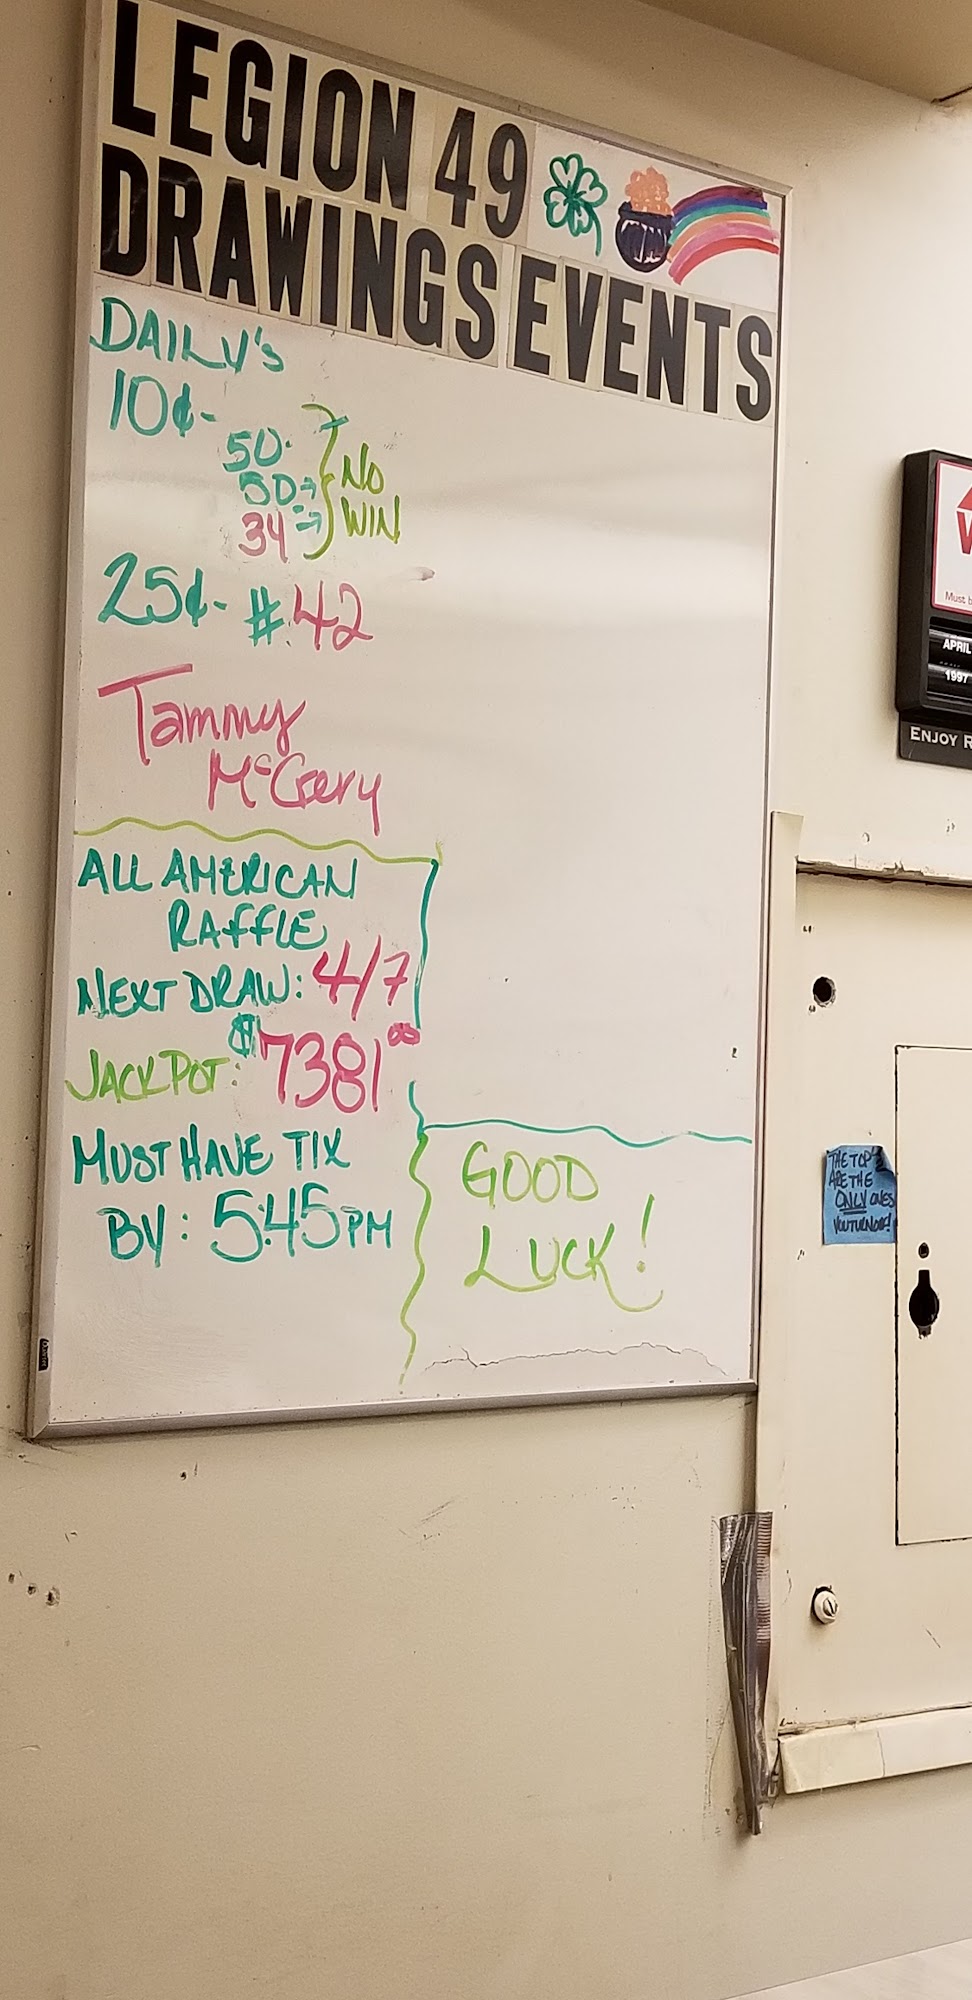 LEGION 49
DRAWINGS EVENTS
DAILY's
10¢-
50
50→
34→
NO
WIN
25¢- #42
Tammy
ALL AMERICAN
RAFFLE
NEXT DRAW: 4/7
JACKPOT: $7381⁰⁰
MUST HAVE TIX
BY: 5:45PM
GOOD
LUCK!
W
Must b
APRIL
1997
ENJOY R
THE TOP
ARE THE
ONLY ONES